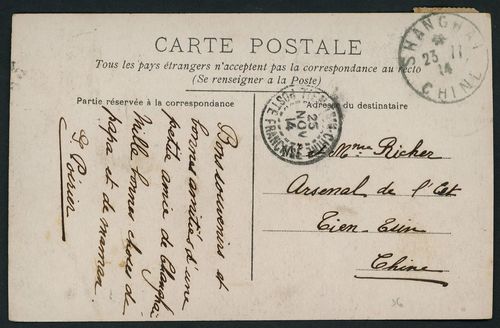 CARTE POSTALE
Tous les pays étrangers n'acceptent pas la correspondance au recto
(Se renseigner à la Poste)
SHANGHAI
23 11
14
CHINE
Partie réservée à la correspondance
Adresse du destinataire
25
NOV
14
POSTE FRANÇAISE
Bons souvenirs et
bonnes amitiés d'une
petite amie de Changhai
Mille bonnes choses de
papa et de maman.
et Mme Richer
Arsenal de l'Est
Tien-Tsin
Chine
36